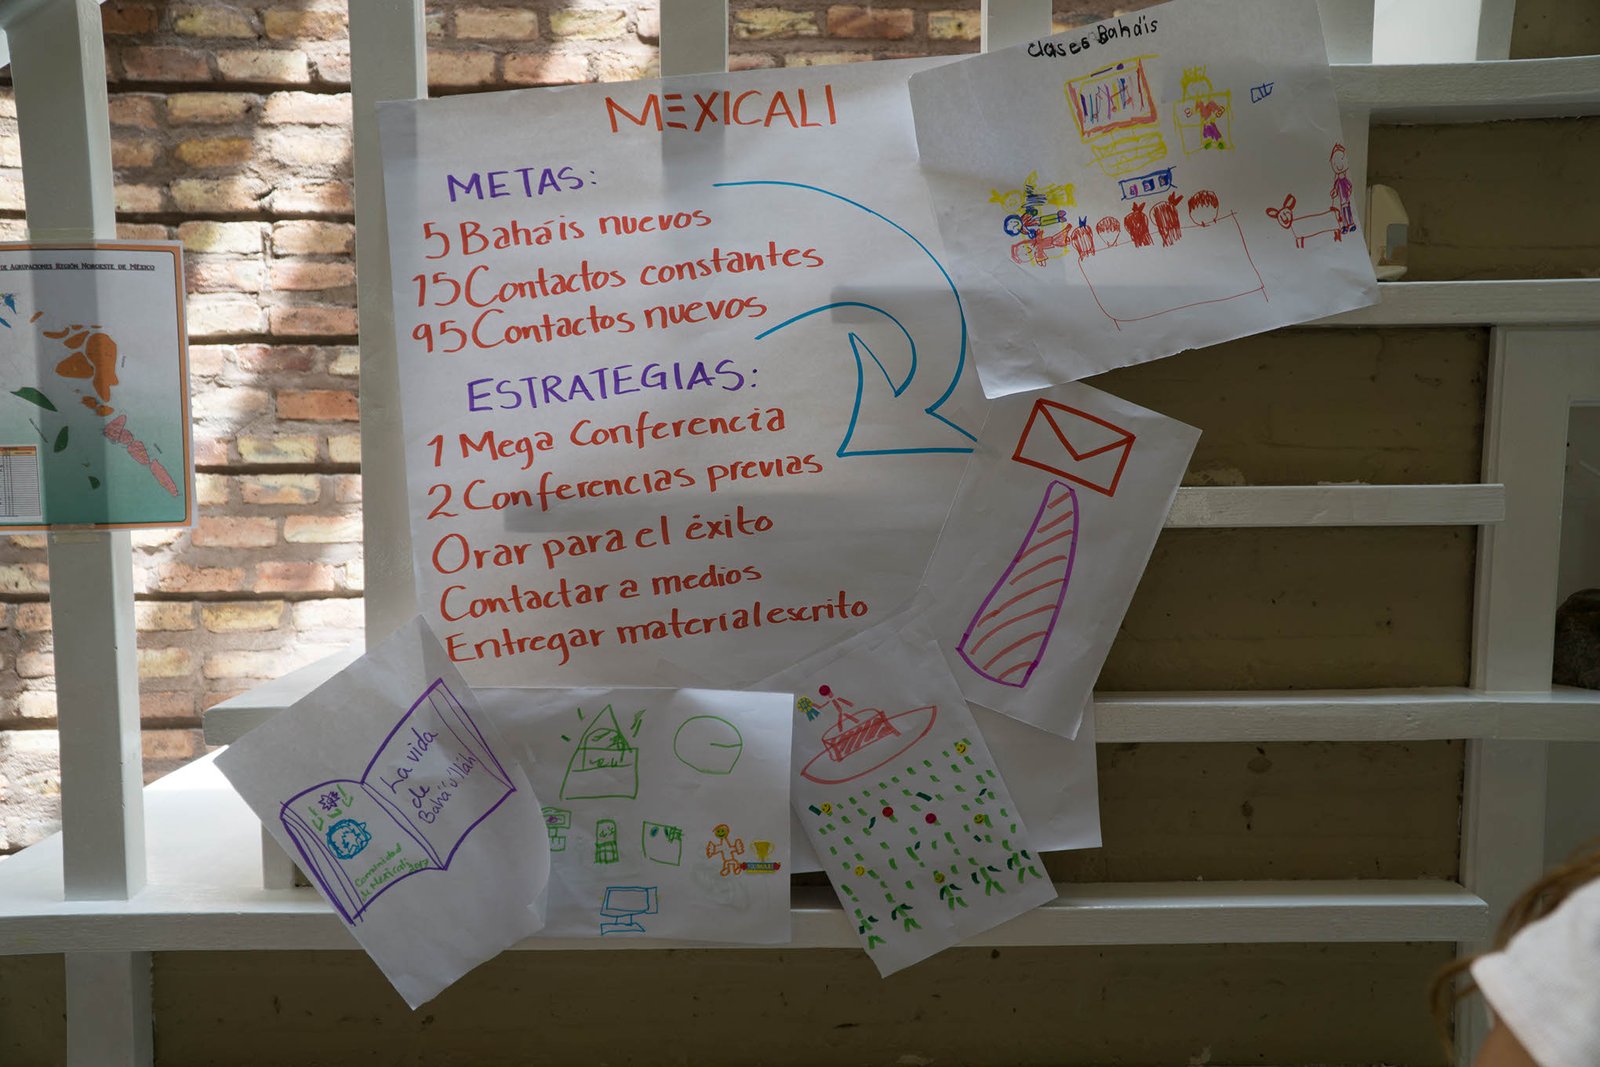 DE AGRUPACIONES REGIÓN NOROESTE DE MÉXICO
MEXICALI
METAS:
5 Baháis nuevos
15 Contactos constantes
95 Contactos nuevos
ESTRATEGIAS:
1 Mega Conferencia
2 Conferencias previas
Orar para el éxito
Contactar a medios
Entregar material escrito
Clases Bahá'is
La vida
de
Bahá'u'lláh
Comunidad
Mexicali